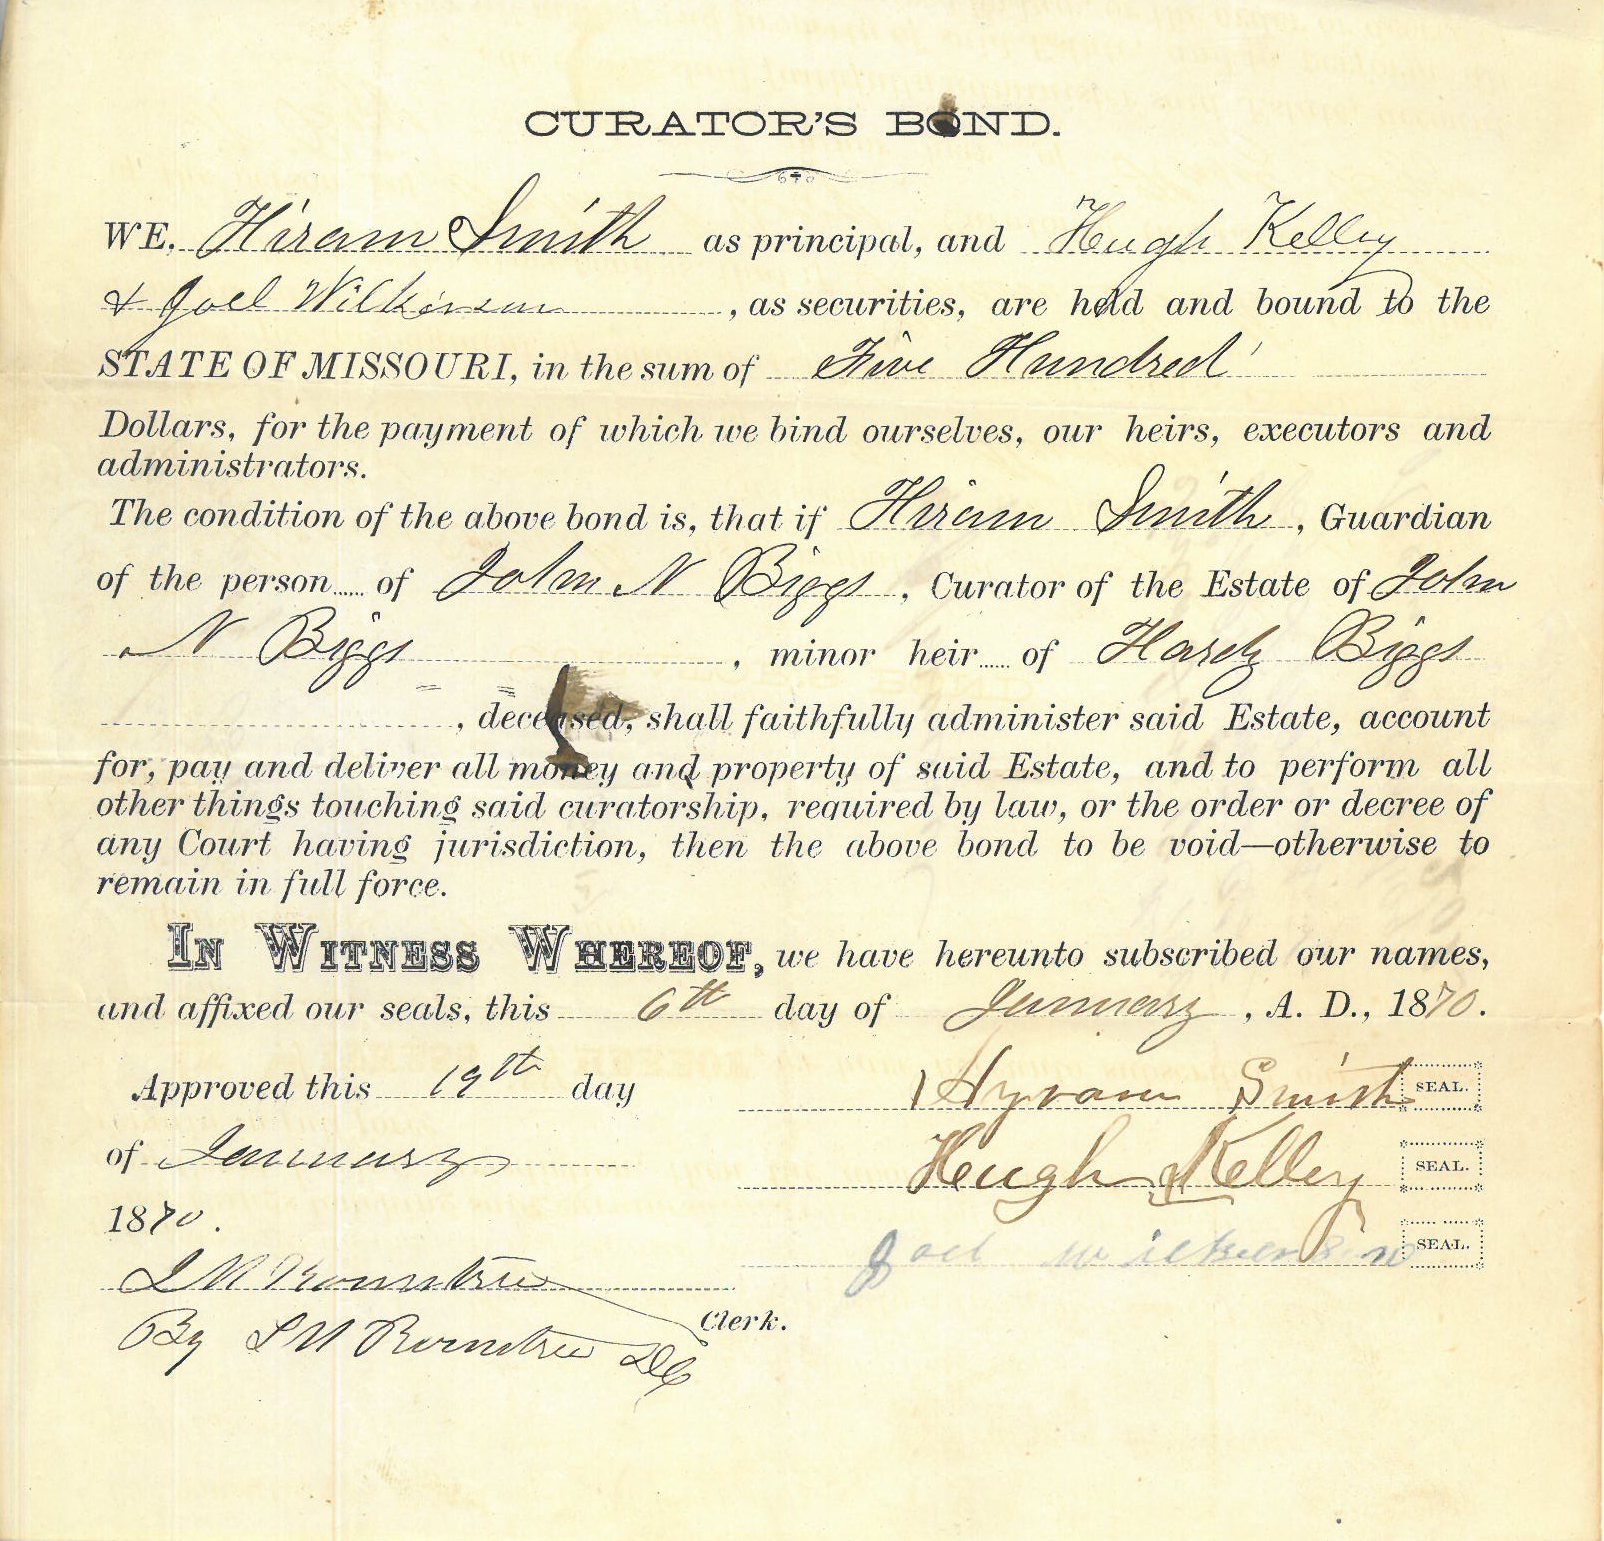 CURATOR'S BOND.
WE, Hiram Smith as principal, and Hugh Kelley
& Joel Wilkinson, as securities, are held and bound to the
STATE OF MISSOURI, in the sum of Five Hundred
Dollars, for the payment of which we bind ourselves, our heirs, executors and
administrators.
The condition of the above bond is, that if Hiram Smith, Guardian
of the person of John N Biggs, Curator of the Estate of John
N Biggs, minor heir of Hardy Biggs
, deceased, shall faithfully administer said Estate, account
for, pay and deliver all money and property of said Estate, and to perform all
other things touching said curatorship, required by law, or the order or decree of
any Court having jurisdiction, then the above bond to be void—otherwise to
remain in full force.
IN WITNESS WHEREOF, we have hereunto subscribed our names,
and affixed our seals, this 6th day of January, A. D., 1870.
Approved this 19th day
Hyram Smith SEAL.
of January
Hugh Kelley SEAL.
1870.
Joel Wilkerson SEAL.
Rountree
Clerk.
By Rountree DC